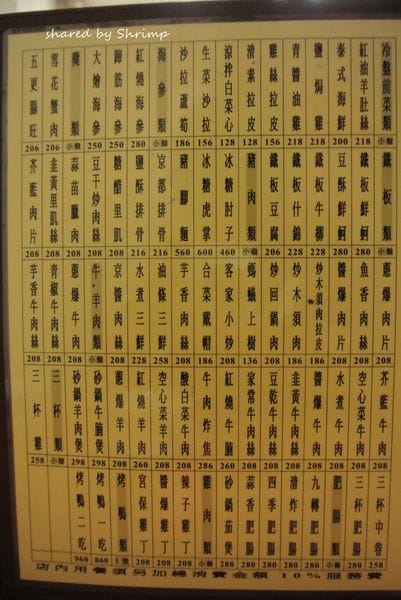 shared by Shrimp
冷盤前菜類 小盤
紅油羊肚絲 218
泰式海鮮 200
鹽焗雞 218
青醬油雞 218
雞絲拉皮 156
清素拉皮 128
涼拌白菜心 128
生菜沙拉 156
沙拉蘆筍 186
海參類 小盤
紅燒海參 280
蹄筋海參 250
大燴海參 250
羹類 小盤
雪花蟹肉 206
五更腸旺 206
鐵板類 小盤
鐵板鮮蚵 280
豆酥鮮蚵 280
鐵板牛柳 228
鐵板什錦 228
鐵板豆腐 206
豬肉類 小盤
冰糖肘子 460
冰糖虎掌 600
豬腳麵 560
京都排骨 244
鹽酥排骨 244
糖醋里肌 208
豆干炒肉絲 208
蒜苗臘肉 208
韭黃里肌 208
芥藍肉片 208
蔥爆肉片 208
魚香肉絲 208
醬爆肉片 208
炒木須肉拉皮 186
炒木須肉 186
炒回鍋肉 208
螞蟻上樹 136
客家小炒 208
合菜戴帽 186
芋香肉絲 208
油條三鮮 258
水煮三鮮 258
京醬肉絲 208
牛.羊肉類 小盤
蔥爆牛肉 208
青椒牛肉絲 208
芋香牛肉絲 208
芥藍牛肉 208
空心菜牛肉 208
水煮牛肉 208
醬爆牛肉 208
韭黃牛肉絲 208
豆乾牛肉絲 208
家常牛肉絲 208
紅燒牛腩 260
牛肉炸焦 286
酸白菜牛肉 208
空心菜羊肉 208
紅燒羊肉 208
蔥爆羊肉 208
砂鍋牛腩煲 298
砂鍋羊肉煲 298
三杯類 小盤
三杯雞 258
三杯中卷 258
三杯肥腸
肥腸類 小盤
九轉肥腸 208
清炸肥腸 208
四季肥腸 208
蒜香肥腸 208
砂鍋茄煲 280
雞肉類 小盤
辣子雞丁 208
醬爆雞丁 208
宮保雞丁 208
烤鴨類 1隻
烤鴨一吃 860
烤鴨二吃 960
店內用餐須另加總消費金額10%服務費